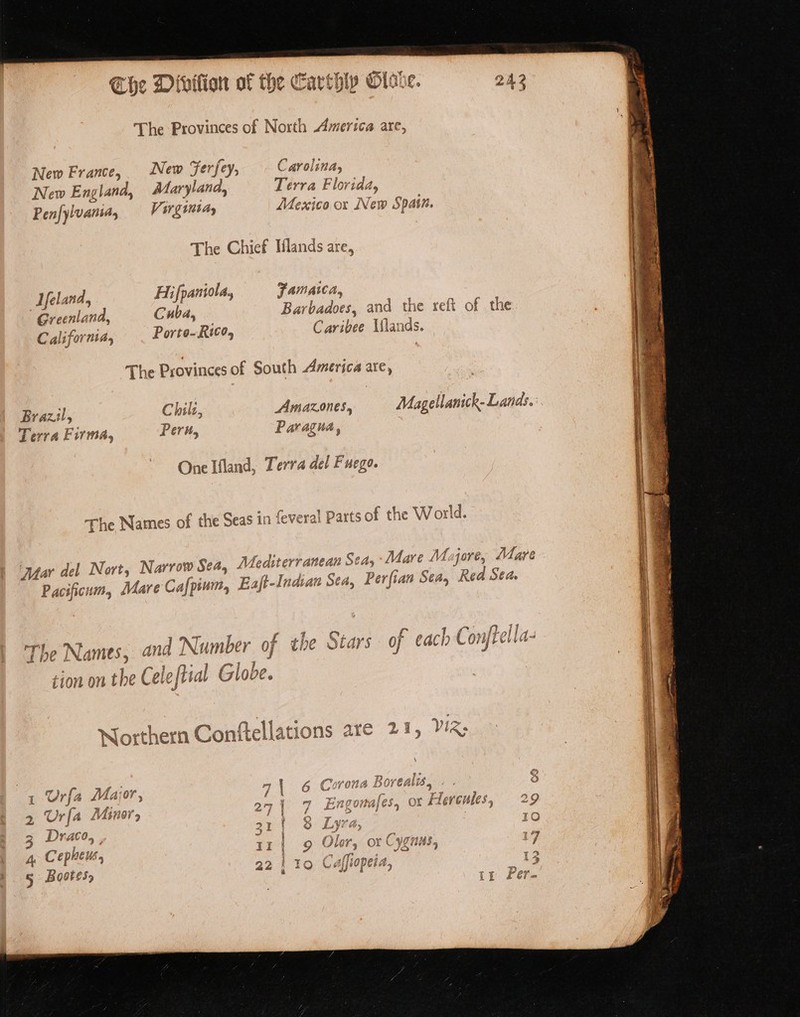 The Diviſion of the Earthly Globe. 243
The Provinces of North America are,
New France, New Jerſey, Carolina,
New England, Maryland, Terra Florida,
Penſylvania, Virginia, Mexico or New Spain.
The Chief Iſlands are,
Iſeland, Hiſpaniola, Jamaica,
Greenland, Cuba, Barbadoes, and the reſt of the
California, Porto-Rico, Caribee Iſlands.
The Provinces of South America are,
Brazil, Chili, Amazones, Magellanick-Lands.
Terra Firma, Peru, Paragua,
One Iſland, Terra del Fuego.
The Names of the Seas in ſeveral Parts of the World.
Mar del Nort, Narrow Sea, Mediterranean Sea, Mare Majore, Mare
Pacificum, Mare Caſpium, Eaſt-Indian Sea, Perſian Sea, Red Sea.
The Names, and Number of the Stars of each Conſtella-
tion on the Celeſtial Globe.
Northern Conſtellations are 21, viz.
1 Urſa Major, 7 | 6 Corona Borealis, 8
2 Urſa Minor, 27 | 7 Engonaſes, or Hercules, 29
3 Draco, 31 | 8 Lyra, 10
4 Cepheus, 11 | 9 Olor, or Cygnus, 17
5 Bootes, 22 | 10 Caſſiopeia, 13
11 Per-